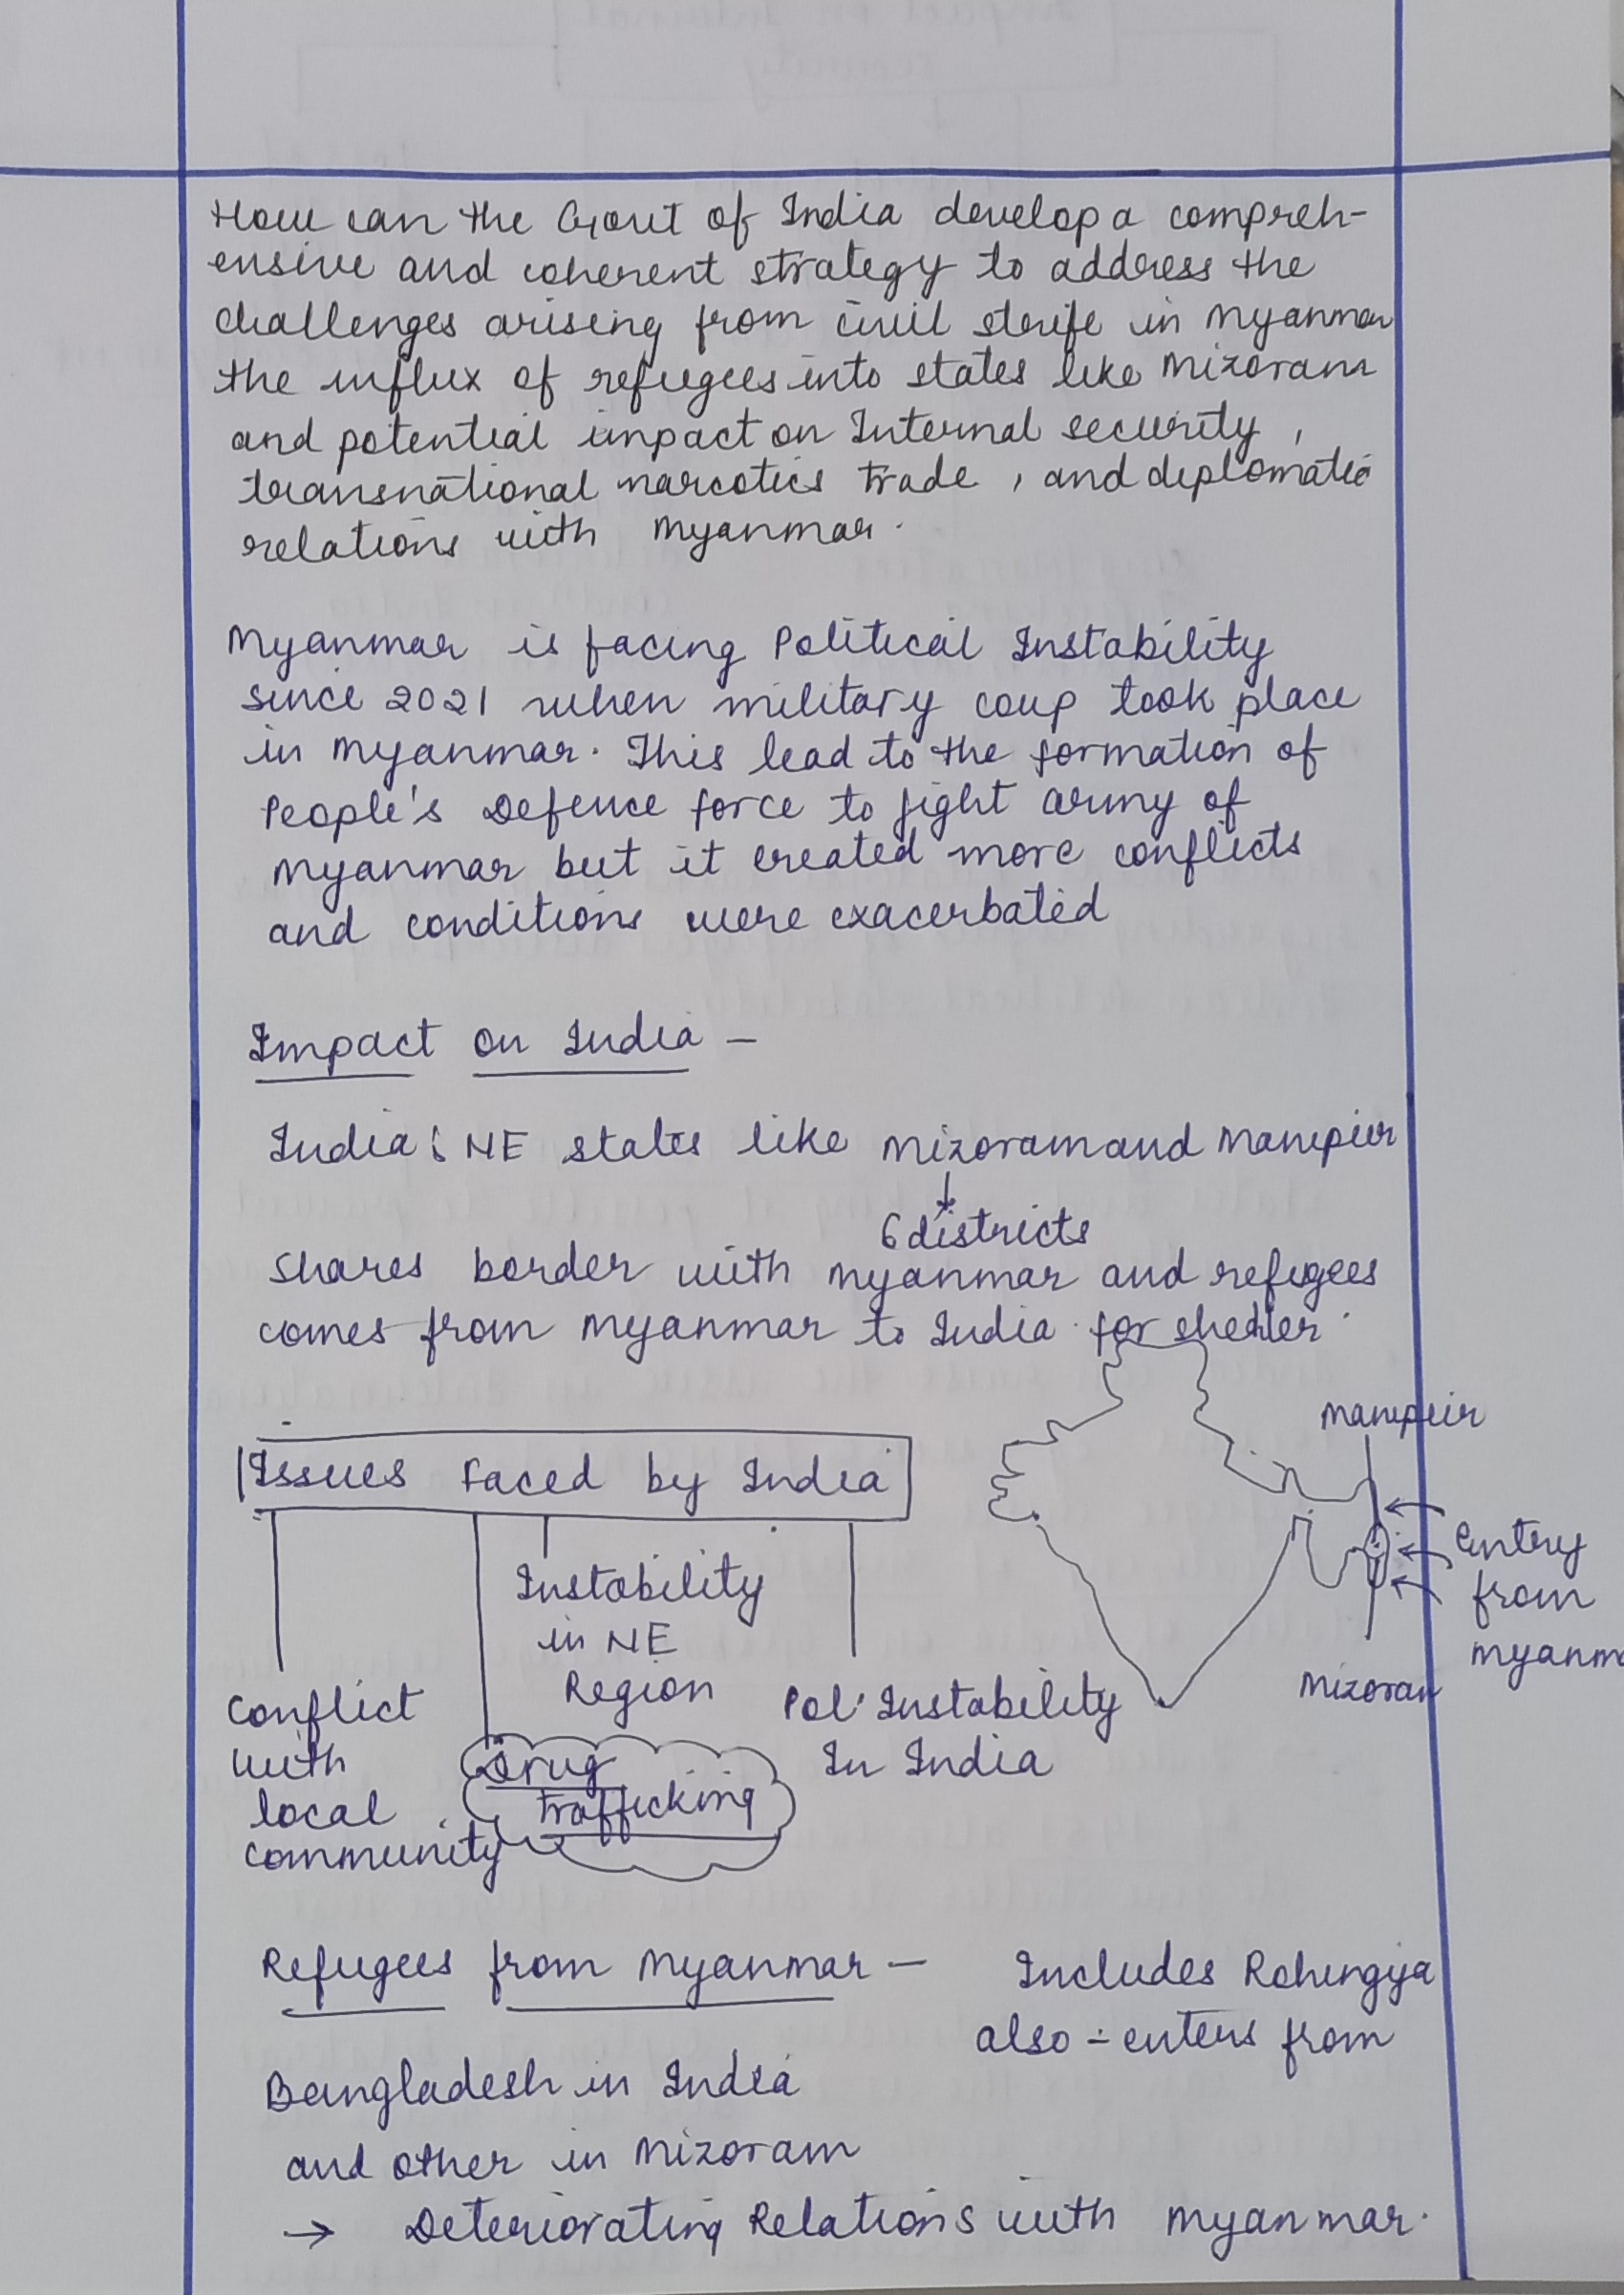 How can the Govt of India develop a compreh-
ensive and coherent strategy to address the
challenges arising from civil strife in Myanmar
the influx of refugees into states like Mizoram
and potential impact on Internal security,
transnational narcotics trade, and diplomatic
relations with Myanmar.
Myanmar is facing Political Instability
since 2021 when military coup took place
in Myanmar. This lead to the formation of
People's Defence force to fight army of
Myanmar but it created more conflicts
and conditions were exacerbated
Impact on India -
India's NE states like Mizoram and Manipur
↓
6 districts
shares border with Myanmar and refugees
comes from Myanmar to India for shelter.
Issues Faced by India
Conflict
with
local
community
Drug
trafficking
Instability
in NE
Region
Pol. Instability
In India
Manipur
Entry
from
Myanma
Mizoram
Refugees from Myanmar - Includes Rohingya
also - enters from
Bangladesh in India
and other in Mizoram
→ Deteriorating Relations with Myanmar.